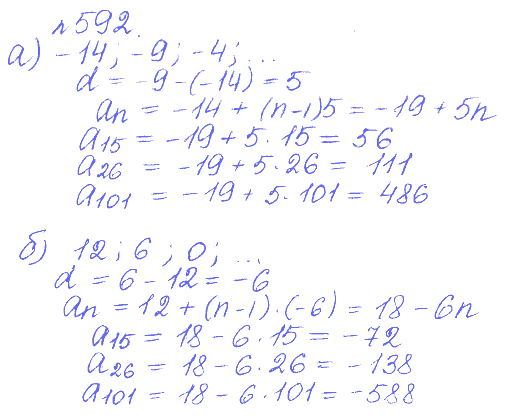 №592.
а) -14; -9; -4; ...
d = -9-(-14) = 5
an = -14 + (n-1)5 = -19 + 5n
a15 = -19 + 5·15 = 56
a26 = -19 + 5·26 = 111
a101 = -19 + 5·101 = 486
б) 12; 6; 0; ...
d = 6 - 12 = -6
an = 12 + (n-1)·(-6) = 18 - 6n
a15 = 18 - 6·15 = -72
a26 = 18 - 6·26 = -138
a101 = 18 - 6·101 = -588